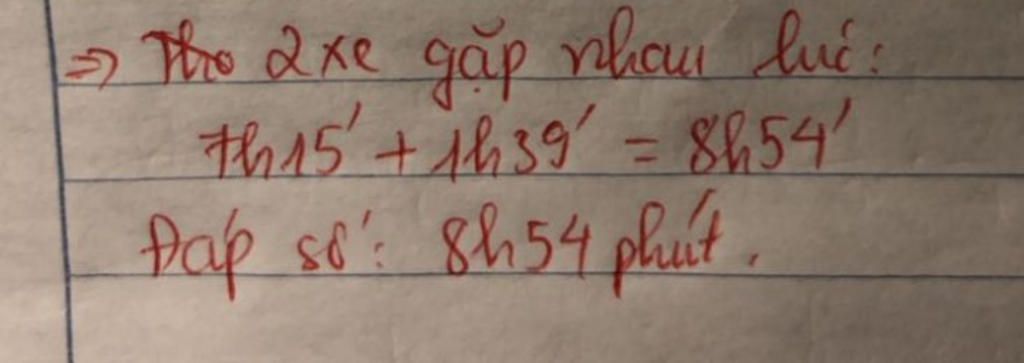 => 2 xe gặp nhau lúc:
7h15' + 1h39' = 8h54'
Đáp số: 8h54 phút.